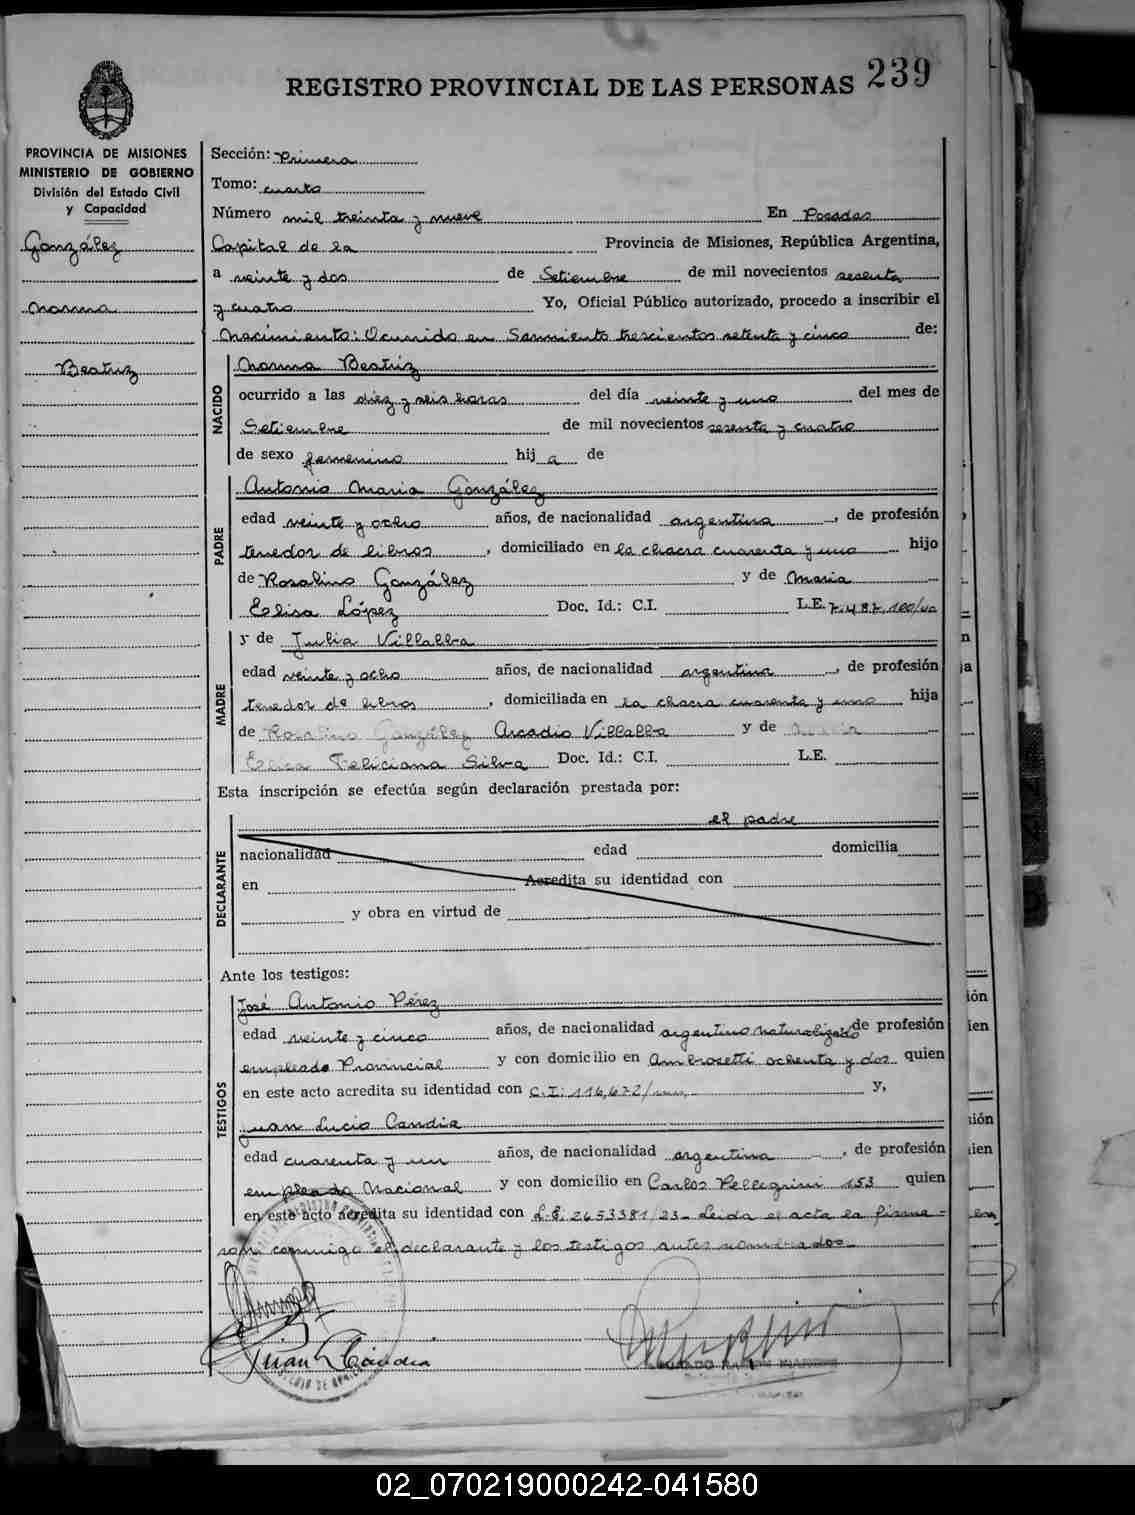 REGISTRO PROVINCIAL DE LAS PERSONAS 239
PROVINCIA DE MISIONES
MINISTERIO DE GOBIERNO
División del Estado Civil
y Capacidad
González
Norma
Beatriz
Sección: Primera
Tomo: cuarto
Número mil treinta y nueve En Posadas
Capital de la Provincia de Misiones, República Argentina,
a veinte y dos de Setiembre de mil novecientos sesenta
y cuatro Yo, Oficial Público autorizado, procedo a inscribir el
Nacimiento: Ocurrido en Sarmiento trescientos setenta y cinco de:
NACIDO
Norma Beatriz
ocurrido a las diez y seis horas del día veinte y uno del mes de
Setiembre de mil novecientos sesenta y cuatro
de sexo femenino hij a de
PADRE
Antonio Maria González
edad veinte y ocho años, de nacionalidad argentina, de profesión
tenedor de libros, domiciliado en la chacra cuarenta y uno hijo
de Rosalino González y de Maria
Elisa López Doc. Id.: C.I. L.E. 7.487.100/
MADRE
y de Julia Villalba
edad veinte y ocho años, de nacionalidad argentina, de profesión
tenedor de libros, domiciliada en la chacra cuarenta y uno hija
de Rosalino González Arcadio Villalba y de Maria
Elisa Feliciana Silva Doc. Id.: C.I. L.E.
Esta inscripción se efectúa según declaración prestada por:
DECLARANTE
el padre
nacionalidad edad domicilia
en Acredita su identidad con
y obra en virtud de
Ante los testigos:
TESTIGOS
José Antonio Pérez
edad veinte y cinco años, de nacionalidad argentino naturalizado de profesión
empleado Provincial y con domicilio en Ambrosetti ochenta y dos quien
en este acto acredita su identidad con C.I: 116,672/ y,
Juan Lucio Candia
edad cuarenta y un años, de nacionalidad argentina, de profesión
empleado Nacional y con domicilio en Carlos Pellegrini 153 quien
en este acto acredita su identidad con L.E. 2653381/23- Leida el acta la firma-
ron conmigo el declarante y los testigos antes nombrados.
Juan L Candia
02_070219000242-041580